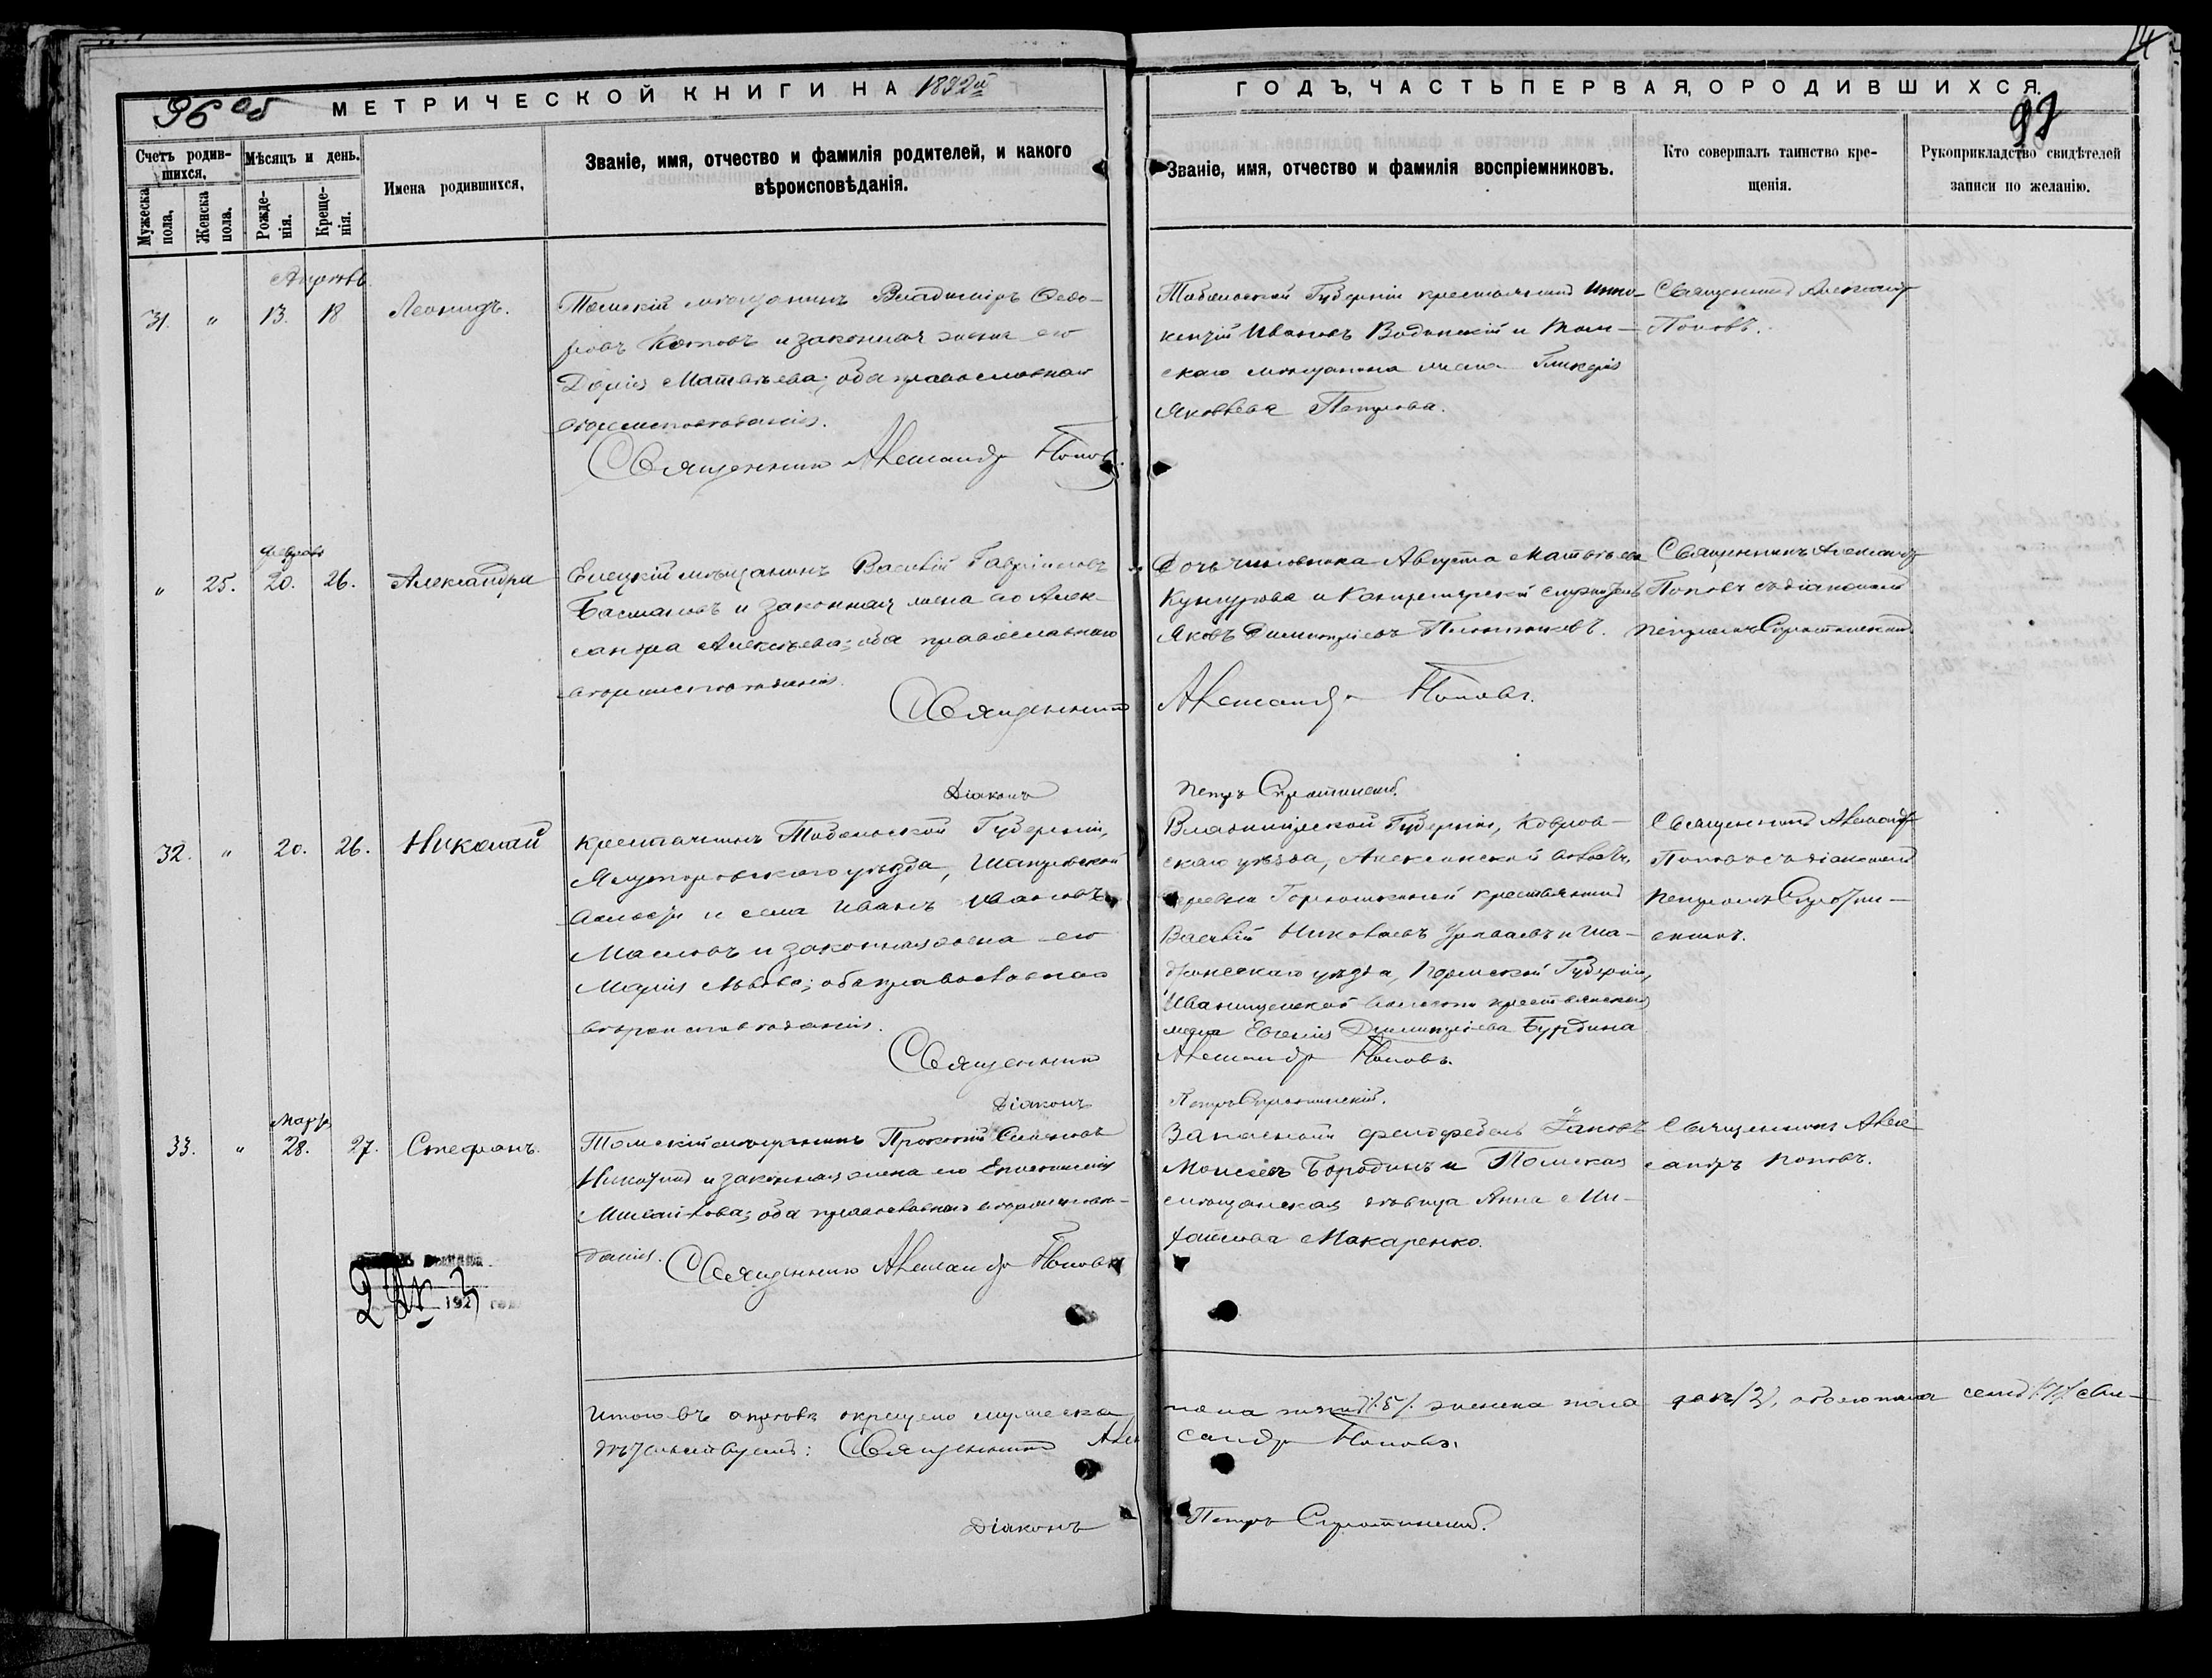 14
96 об
МЕТРИЧЕСКОЙ КНИГИ НА 1892й
ГОДЪ, ЧАСТЬ ПЕРВАЯ, О РОДИВШИХСЯ.
Счетъ родив-
шихся.
Мужеска
пола.
Женска
пола.
Мѣсяцъ и день.
Рожде-
нія.
Креще-
нія.
Имена родившихся.
Званіе, имя, отчество и фамилія родителей, и какого
вѣроисповѣданія.
Званіе, имя, отчество и фамилія воспріемниковъ.
Кто совершалъ таинство кре-
щенія.
Рукоприкладство свидѣтелей
записи по желанію.
Апрѣль
31. " 13. 18 Леонидъ.
Томскій мѣщанинъ Владиміръ Ѳедо-
ровъ Котовъ и законная жена его
Дарія Матвѣева; оба православнаго
вѣроисповѣданія.
Священникъ Александръ Поповъ
Тобольской Губерніи крестьянинъ Инно-
кентій Ивановъ Водинскій и Том-
скаго мѣщанина жена Гликерія
Яковлева Петрова.
Священникъ Александръ
Поповъ.
Февраль
" 25. 20. 26. Александра
Елецкій мѣщанинъ Василій Гавріиловъ
Басмановъ и законная жена его Алек-
сандра Алексѣева; оба православнаго
вѣроисповѣданія.
Священникъ Александръ Поповъ.
Дочь чиновника Августа Матвѣева
Кунгурова и Канцелярскій служитель
Яковъ Димитріевъ Плотниковъ.
Священникъ Александръ
Поповъ съ діакономъ
Петромъ Сиротинскимъ.
Діаконъ Петръ Сиротинскій.
32. " 20. 26. Николай
Крестьянинъ Тобольской Губерніи,
Ялуторовскаго уѣзда,
волости и села Иванъ Ивановъ
Масловъ и законная жена его
Марія Львова; оба православнаго
вѣроисповѣданія.
Священникъ Александръ Поповъ.
Владимірской Губерніи, Ковров-
скаго уѣзда, Алексинской волости,
деревни Горюшкиной крестьянинъ
Василій Николаевъ и Ша-
дринскаго уѣзда, Пермской Губерніи,
Иванищевской волости крестьянская
Евгенія Димитріева Бурдина
Священникъ Александръ
Поповъ съ діакономъ
Петромъ Сироти-
нскимъ.
Діаконъ Петръ Сиротинскій.
Мартъ
33. " 28. 27. Стефанъ.
Томскій мѣщанинъ Прокопій Семеновъ
Никитинъ и законная жена его
Михайлова; оба православнаго вѣроисповѣ-
данія.
Священникъ Александръ Поповъ
Запасный фельдфебель Іаковъ
Моисеевъ Бородинъ и Томская
мѣщанская дѣвица Анна Ми-
хайлова Макаренко.
Священникъ Алек
сандръ Поповъ.
192 года
Итого въ апрѣлѣ крещено мужеска пола пять /:5/: женска пола двѣ /2/, обоего пола семь /:7/:
свидѣтельствуемъ: Священникъ Александръ Поповъ.
Діаконъ Петръ Сиротинскій.